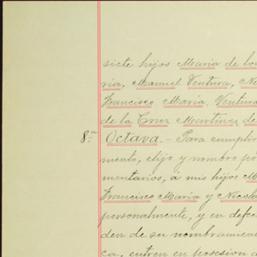 siete hijos Maria de lo
ria, Manuel Ventura, N
Francisco Maria, Ventura
de la Cruz Martinez de
8.ª Octava.- Para cumpli
mento, elijo y nombro p
mentarios, á mis hijos M
Francisco Maria y Nicola
personalmente, y en defe
den de su nombramien
ca, entren en posesion d